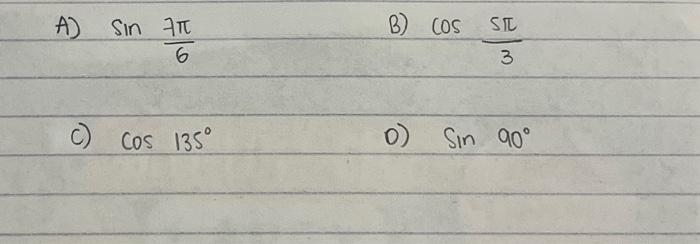 A) sin 7π/6 B) cos 5π/3
C) cos 135° D) sin 90°